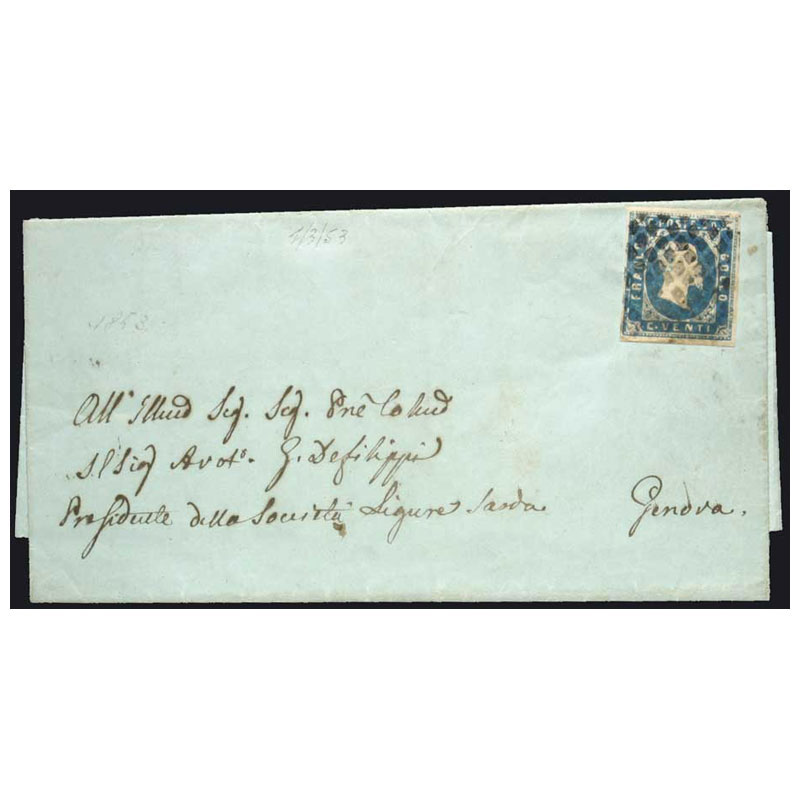 5/3/53
1853
FRANCO
POSTE
BOLLO
C. VENTI
All' Illmo Sig. Sig. Prē Colmd
Il Sig Avoto. G. Defilippi
Presidente della Società Ligure Sarda
Genova.